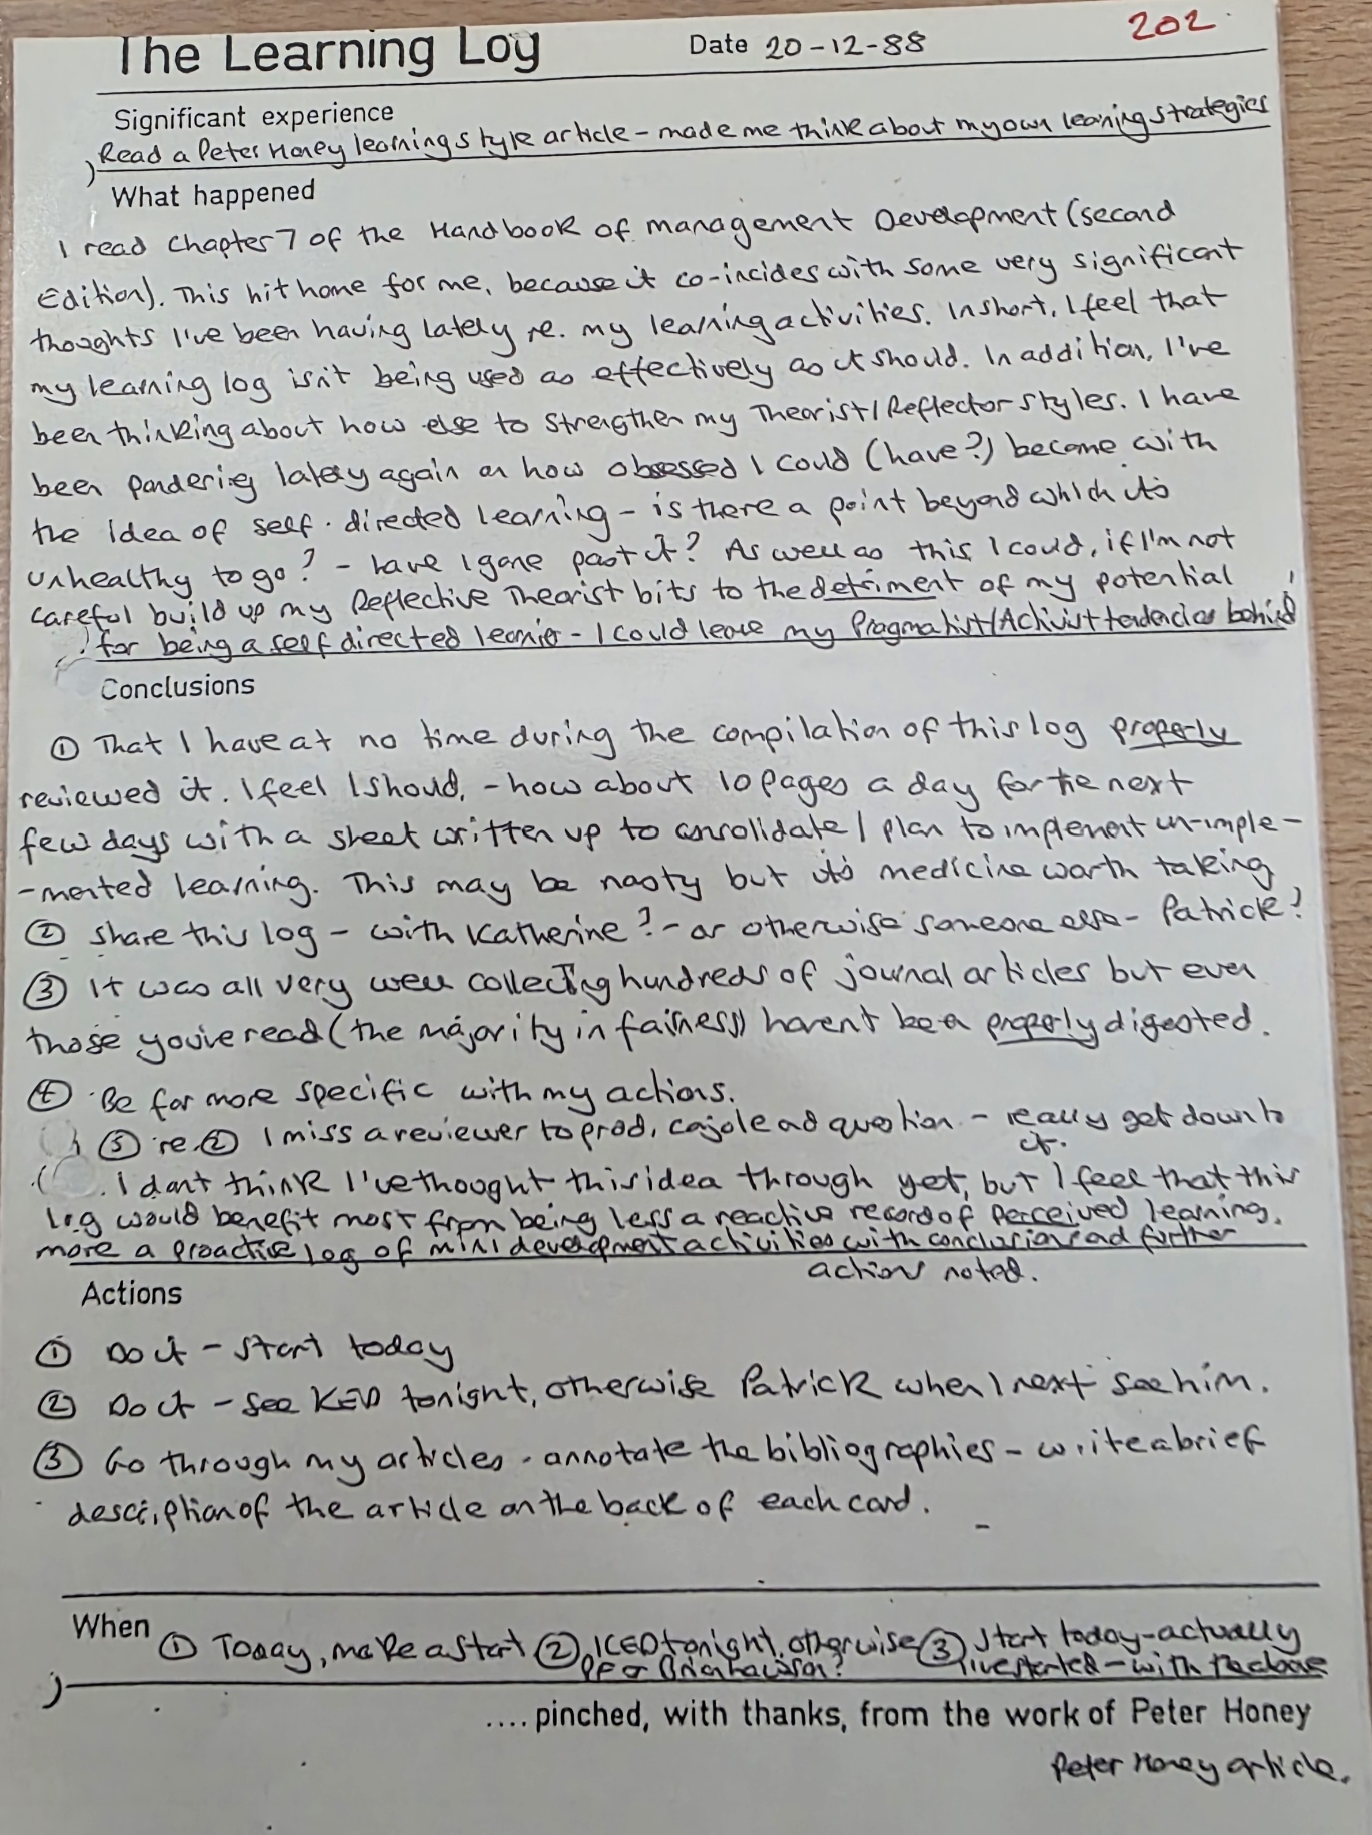 202
The Learning Log
Date 20-12-88
Significant experience
Read a Peter Honey learning style article - made me think about my own learning strategies
What happened
I read Chapter 7 of the Handbook of management Development (second
Edition). This hit home for me, because it co-incides with some very significant
thoughts I've been having lately re. my learning activities. In short, I feel that
my learning log isn't being used as effectively as it should. In addition, I've
been thinking about how else to strengthen my Theorist/Reflector styles. I have
been pondering lately again on how obsessed I could (have?) become with
the idea of self-directed learning - is there a point beyond which its
unhealthy to go? - have I gone past it? As well as this I could, if I'm not
careful build up my Reflective Theorist bits to the detriment of my potential
for being a self directed learner - I could leave my Pragmatist/Activist tendencies behind!
Conclusions
① That I have at no time during the compilation of this log properly
reviewed it. I feel I should, - how about 10 pages a day for the next
few days with a sheet written up to consolidate / plan to implement un-imple-
-mented learning. This may be nasty but its medicine worth taking
② Share this log - with Katherine? - or otherwise someone else - Patrick?
③ It was all very well collecting hundreds of journal articles but even
those you've read (the majority in fairness) haven't been properly digested.
④ Be far more specific with my actions.
⑤ re. ② I miss a reviewer to prod, cajole and question - really get down to
it.
I don't think I've thought this idea through yet, but I feel that this
log would benefit most from being less a reactive record of perceived learning,
more a proactive log of mini development activities with conclusions and further
actions noted.
Actions
① Do it - start today
② Do it - see KED tonight, otherwise Patrick when I next see him.
③ Go through my articles - annotate the bibliographies - write a brief
description of the article on the back of each card.
When ① Today, make a start ② KED tonight, otherwise ③ start today - actually
PF or Brian ? I've started - with the above
.... pinched, with thanks, from the work of Peter Honey
Peter Honey article.